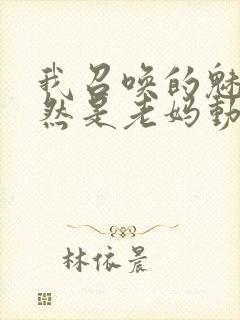 我召唤的魅
然是老妈動
林依晨